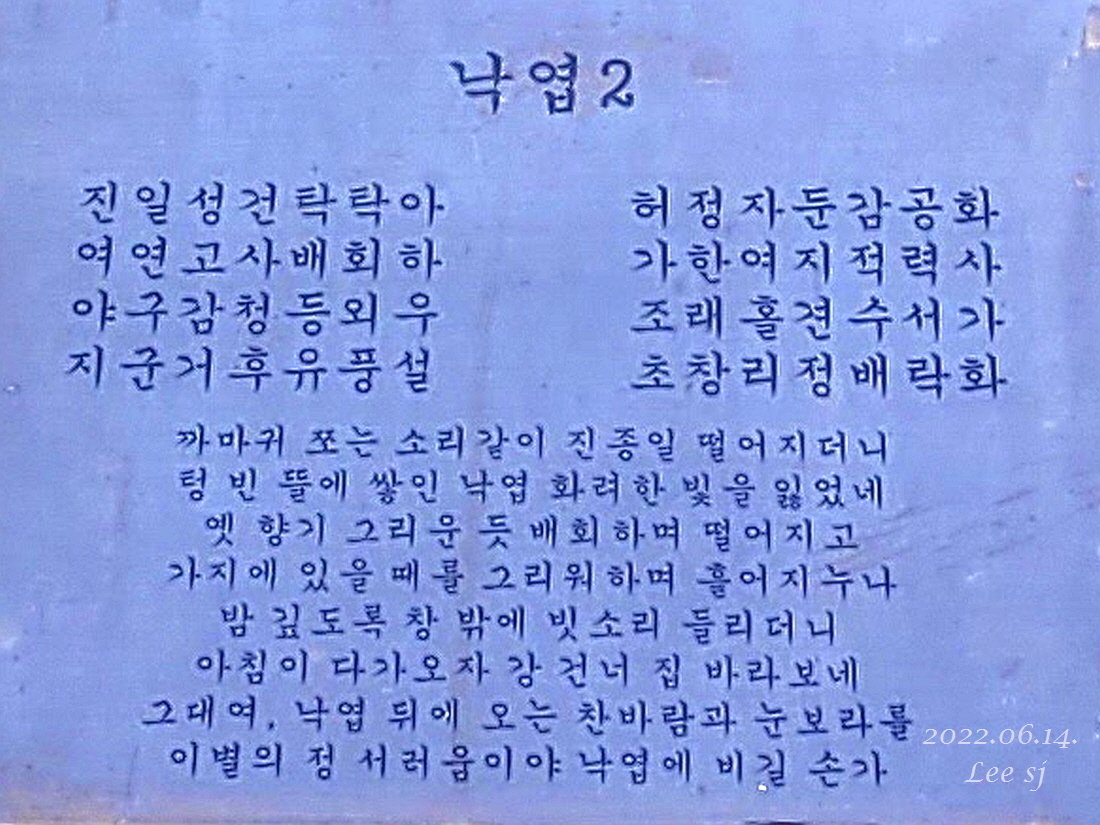 낙엽2
진일성건탁탁아 허정자둔감공화
여연고사배회하 가한여지적력사
야구감청등외우 조래홀견수서가
지군거후유풍설 초창리정배락화
까마귀 쪼는 소리같이 진종일 떨어지더니
텅 빈 뜰에 쌓인 낙엽 화려한 빛을 잃었네
옛 향기 그리운 듯 배회하며 떨어지고
가지에 있을 때를 그리워하며 흩어지누나
밤 깊도록 창 밖에 빗소리 들리더니
아침이 다가오자 강 건너 집 바라보네
그대여, 낙엽 뒤에 오는 찬바람과 눈보라를
이별의 정 서러움이야 낙엽에 비길 손가
2022.06.14.
Lee sj